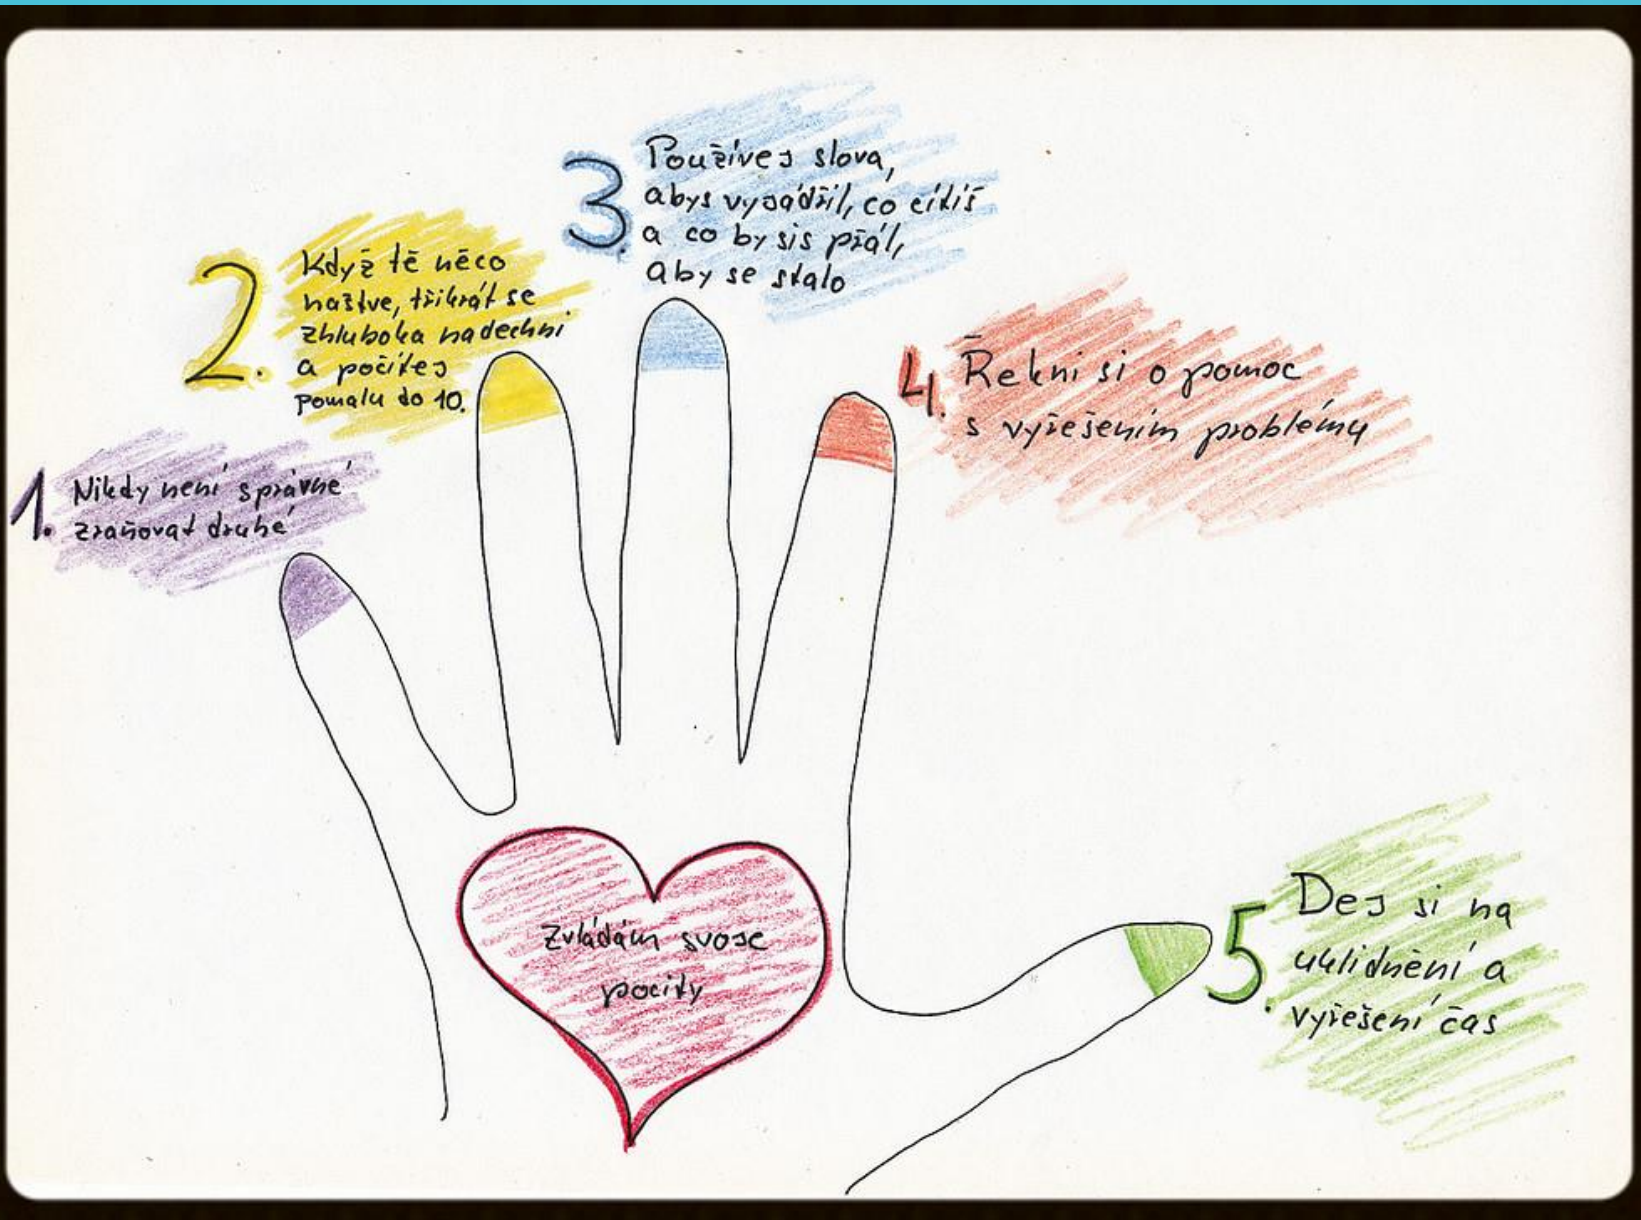 1. Nikdy není správné
zraňovat druhé
2. Když tě něco
naštve, třikrát se
zhluboka nadechni
a počítej
pomalu do 10.
3. Používej slova,
abys vyjádřil, co cítíš
a co by sis přál,
aby se stalo
4. Řekni si o pomoc
s vyřešením problému
5. Dej si na
uklidnění a
vyřešení čas
Zvládám svoje
pocity